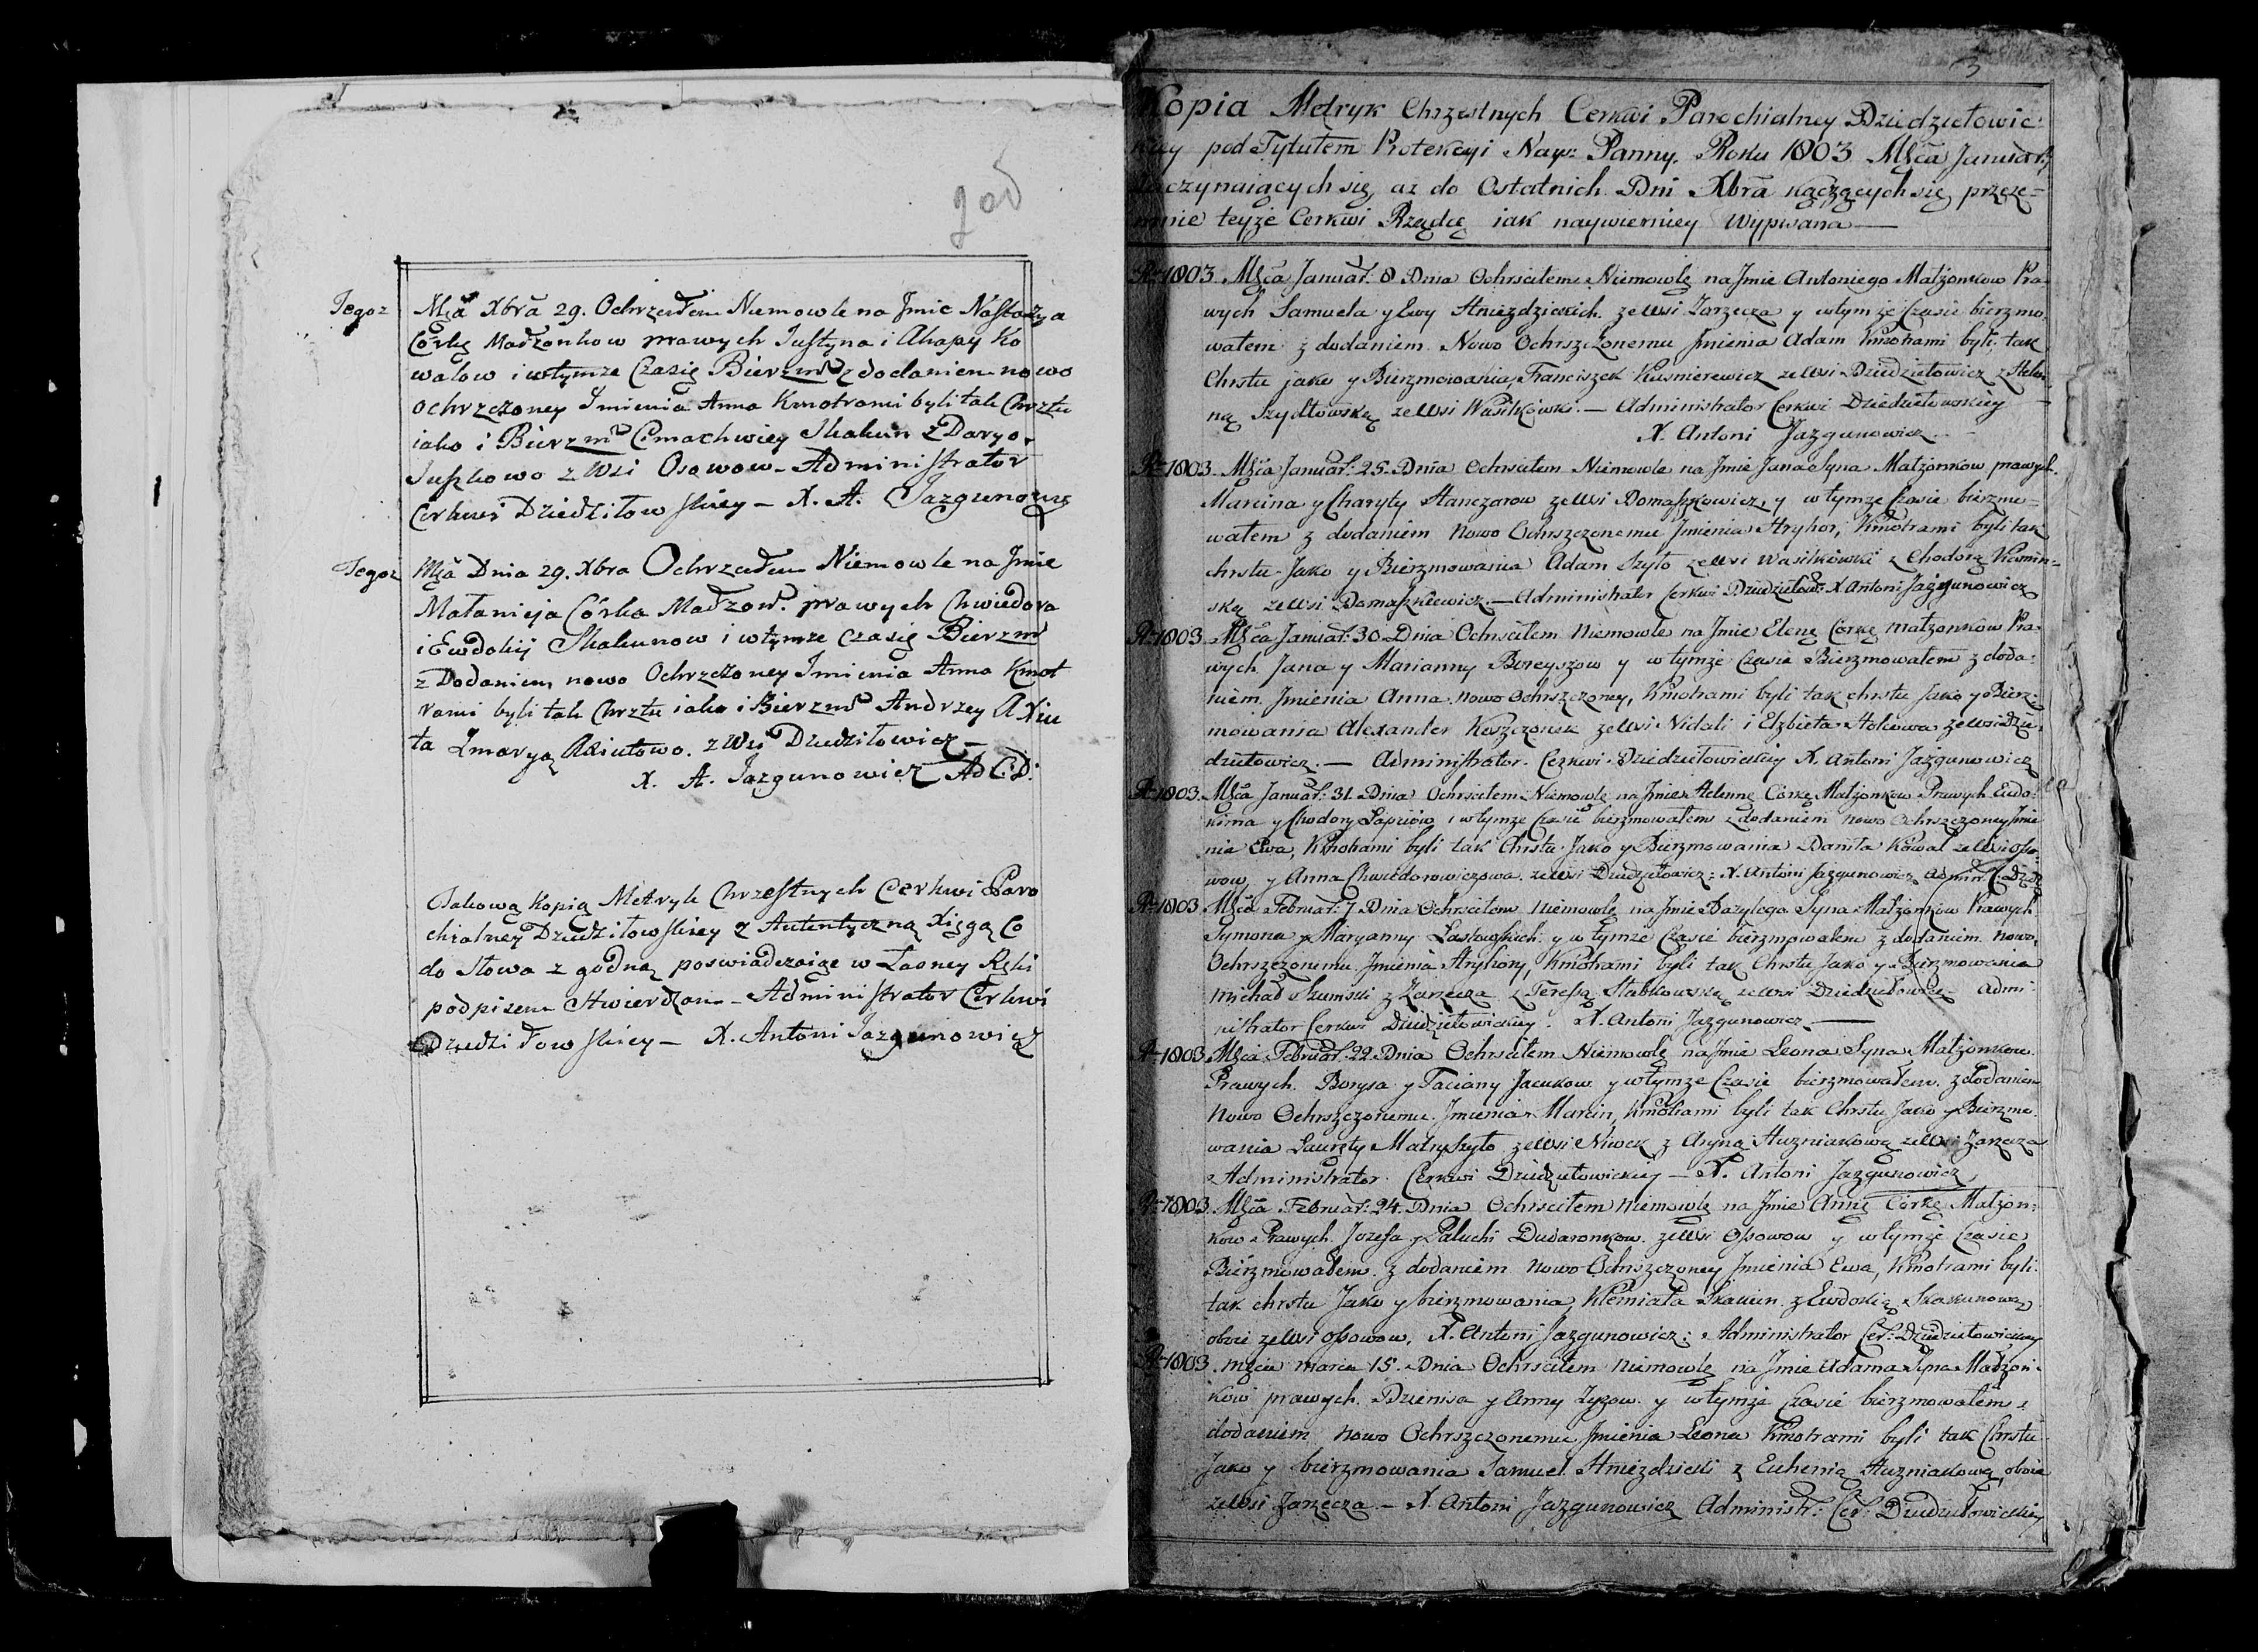 god
Tegoż Mςa Xbra 29. Ochrzciłem Niemowle na Jmie Nastazya
Córkę Małżonkow prawych Justyna i Ahapy Ko
walow i wtymze Czasię Bierzmł z dodaniem nowo
ochrzczoney Jmienia Anna Kmotrami byli tak Chrztu
iako i Bierzmł Skakun z Daryo
Suszkowo z Wsi Osowow - Administrator
Cerkwi Dziedziłowskiey - X. A. Jazgunowicz
Tegoż Mςa Dnia 29. Xbra Ochrzciłem Niemowle na Jmie
Małanieja Córka Małżow. prawych Chwiedora
i Ewdokij Skakunow i wtymze czasię Bierzmł
z Dodaniem nowo Ochrzczoney Jmienia Anna Kmot
rami byli tak Chrztu iako i Bierzmł Andrzey Axiu
ta Zmaryą Axiutowo. z Wsi Dziedziłowicz -
X. A. Jazgunowicz Ad C: D:
Takową Kopią Metryk Chrzestnych Cerkwi Paro
chialney Dziedziłowskiey z Autentyczną Xięgą Co
do Słowa z godną poswiadczaiąc w Lasney Ręki
podpisem stwierdzam - Administrator Cerkwi
Dziedziłowskiey - X. Antoni Jazgunowicz
3
Kopia Metryk Chrzestnych Cerkwi Parochialney Dziedziełowic-
kiey pod Tytułem Protekcyi Nayś: Panny. Roku 1803 Mςca Januar:
zaczynaiących się, az do Ostatnich Dni Xbra kączących się przeze-
mnie teyże Cerkwi Rządcę iak naywierniey Wypisana —
R. 1803. Mςca Januar: 8 Dnia Ochrsciłem Niemowlę na Jmie Antoniego Małżonkow Pra-
wych Samuela y Ewy Hniezdzickich zewsi Zarzecza y wtymże Czasie bierzmo-
wałem z dodaniem Nowo Ochrszczonemu Jmienia Adam Kmotrami byli tak
Chrstu jako y Bierzmowania, Franciszek Kusnierewicz zewsi Dziedziełowicz z Helen-
ną Szydłowską zewsi Wasilkowki. — Administrator Cerkwi Dziedziełowskiey
X. Antoni Jazgunowicz
R. 1803. Mςca Januar: 25. Dnia Ochrsciłem Niemowle na Jmie Jana Syna Małżonkow prawych
Marcina y Charyty Hanczarow zewsi Domaszkowicz, y wtymże Czasie bierzmo-
wałem z dodaniem Nowo Ochrszczonemu Jmienia Hryhor, Kmotrami byli tak
chrstu Jako y Bierzmowania Adam Szyło zewsi Wasilkowki z Chodorą
ską zewsi Domaszkiewicz. — Administrator Cerkwi Dziedziełow: X. Antoni Jazgunowicz
R. 1803. Mςca Januar: 30. Dnia Ochrsciłem Niemowle na Jmie Elenę Corkę Małżonkow Pra-
wych Jana y Marianny Boreyszow y wtymże Czasie Bierzmowałem z doda-
niem Jmienia Anna Nowo Ochrszczoney, Kmotrami byli tak chrstu Jako y Bierz-
mowania Alexander zewsi Nidali i Elzbieta zewsi Dzie-
dziełowicz. — Administrator Cerkwi Dziedziełowickiey X. Antoni Jazgunowicz
R. 1803. Mςca Januar: 31. Dnia Ochrsciłem Niemowlę na Jmie Helennę Corkę Małżonkow Prawych Ewdo-
kima y Chodory Łapciow i wtymże Czasie bierzmowałem z dodaniem Nowo Ochrszczoney Jmie
nia Ewa, Kmotrami byli tak Chrstu Jako y Bierzmowania Daniła Kowal zewsi Oso-
wow y Anna Chwiedorowiczowa zewsi Dziedziełowicz: X. Antoni Jazgunowicz Admin: C. Dzied:
R. 1803. Mςca Februar: 7 Dnia Ochrsciłem Niemowlę na Jmie Bazylego Syna Małżonkow Prawych
Symona y Maryanny Laskowskich y wtymże Czasie bierzmowałem z dodaniem Nowo
Ochrszczonemu Jmienia Hryhory, Kmotrami byli tak Chrstu Jako y Bierzmowania
Michał Szumski z Zarzecza z Teressą Stabkowską zewsi Dziedziełowicz Admi-
nistrator Cerkwi Dziedziełowickiey. X. Antoni Jazgunowicz —
R. 1803. Mςca Februar: 22. Dnia Ochrsciłem Niemowlę na Jmie Leona Syna Małżonkow
Prawych. Borysa y Taciany Jacukow y wtymże Czasie bierzmowałem z dodaniem
Nowo Ochrszczonemu Jmienia Marcin, Kmotrami byli tak Chrstu Jako y Bierzmo
wania Ławręty Matryszyło zewsi Niwek z Aryną Huzniakową zewsi Zarzecza
Administrator Cerkwi Dziedziełowickiey — X. Antoni Jazgunowicz
R. 1803. Mςca Februar: 24. Dnia Ochrsciłem Niemowlę na Jmie Annę Corkę Małżon-
kow Prawych Jozefa y Paluchi Dudaronkow zewsi Osowow y wtymże Czasie
Bierzmowałem z dodaniem Nowo Ochrszczoney Jmienia Ewa, Kmotrami byli
tak chrstu Jako y bierzmowania, Klemiata Skakun z Ewdokią Skakunową
oboie zewsi Osowow, X. Antoni Jazgunowicz: Administrator Cer: Dziedziełowickiey
R. 1803. Mςca marca 15. Dnia Ochrsciłem niemowlę na Jmie Adama Syna Małżon-
kow prawych. Dzienisa y Anny Zyzow y wtymże Czasie bierzmowałem z
dodaniem Nowo Ochrszczonemu Jmienia Leona Kmotrami byli tak Chrstu
Jako y bierzmowania Samuel Hniezdzicki z Euhenią Huzniakową, oboie
zewsi Zarzecza. — X. Antoni Jazgunowicz Administr: Cer: Dziedziełowickiey